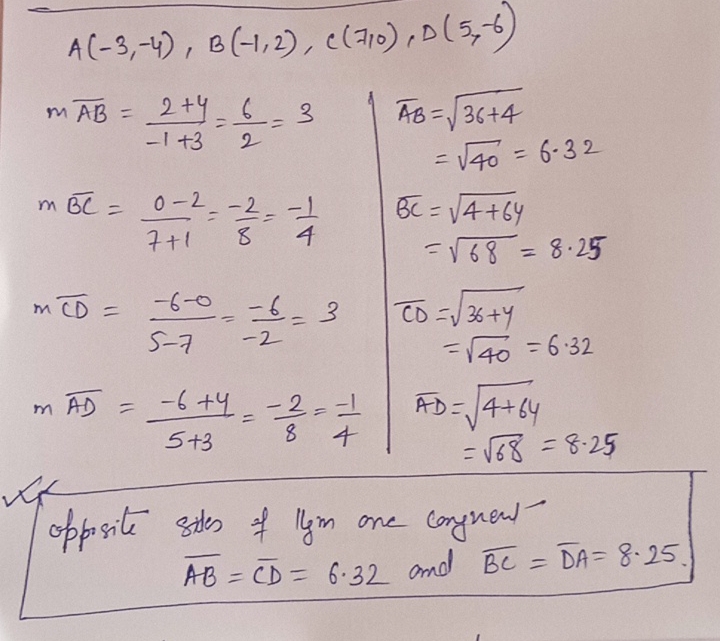 A(-3,-4), B(-1,2), C(7,0), D(5,-6)
m AB = 2+4 / -1+3 = 6/2 = 3
m BC = 0-2 / 7+1 = -2/8 = -1/4
m CD = -6-0 / 5-7 = -6/-2 = 3
m AD = -6+4 / 5+3 = -2/8 = -1/4
AB = √36+4
= √40 = 6.32
BC = √4+64
= √68 = 8.25
CD = √36+4
= √40 = 6.32
AD = √4+64
= √68 = 8.25
opposite sides of llgm are congruent
AB = CD = 6.32 and BC = DA = 8.25.